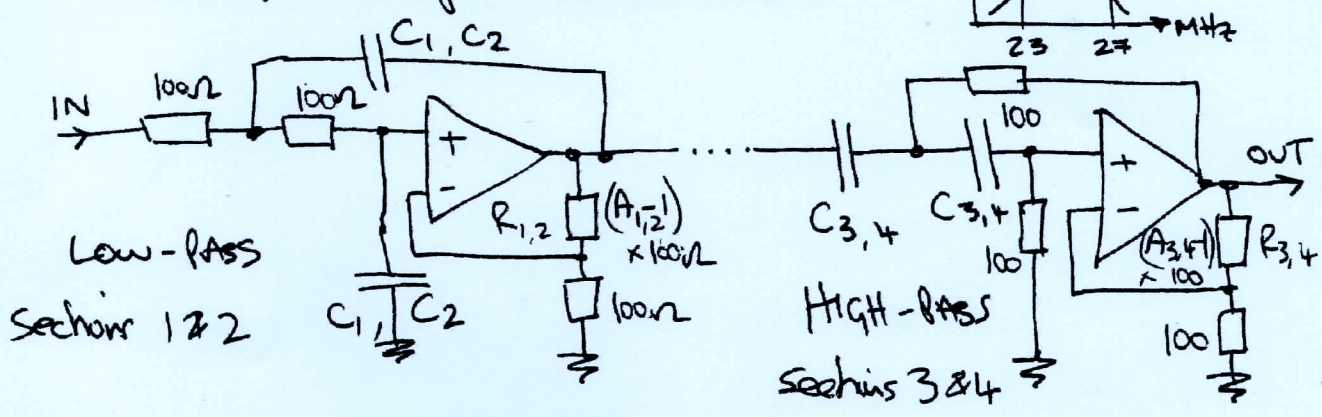 MHz
23 27
C1, C2
IN
100Ω
100Ω
100
OUT
R1,2
(A1,2-1)
×100Ω
C3,4
C3,4
100
(A3,4-1)
× 100
R3,4
LOW-PASS
Sections 1&2
C1, C2
100Ω
HIGH-PASS
sections 3&4
100